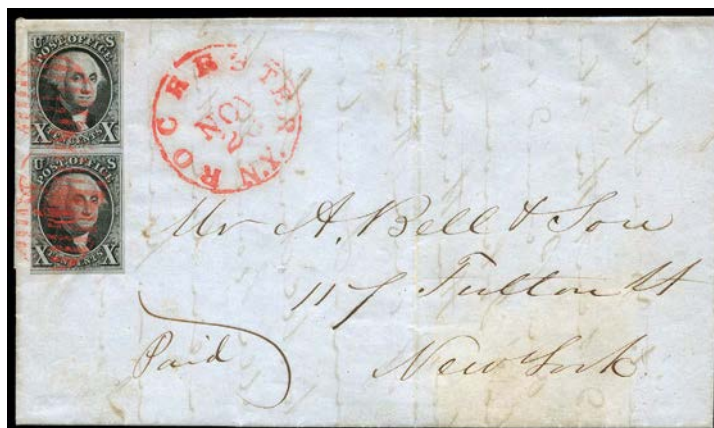 U S
POST OFFICE
X TEN CENTS X
U S
POST OFFICE
X TEN CENTS X
ROCHESTER N.Y
NOV
Mr A. Bell & Son
117 Fulton St
New York
Paid